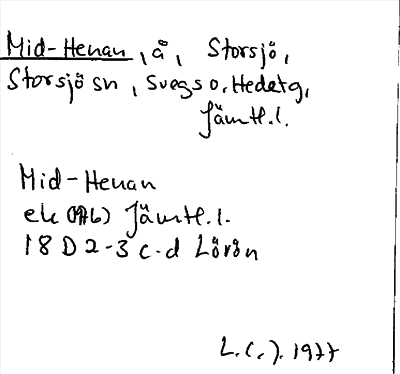 Mid-Henan, å, Storsjö,
Storsjö sn, Svegs o. Hedetg,
Jämtl.l.
Mid-Henan
ek (1976) Jämtl.l.
18 D 2-3 c-d Lörön
L.(.J. 1977